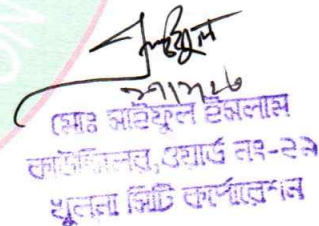 মোঃ সাইফুল ইসলাম
কাউন্সিলর,ওয়ার্ড নং-২৯
খুলনা সিটি কর্পোরেশন